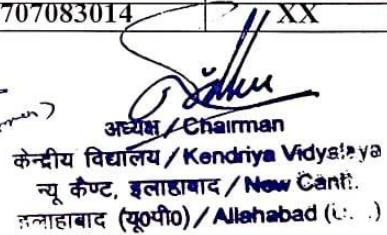 707083014 XX
अध्यक्ष / Chairman
केन्द्रीय विद्यालय / Kendriya Vidyalaya
न्यू कैण्ट, इलाहाबाद / New Cantt.
इलाहाबाद (यू0पी0) / Allahabad